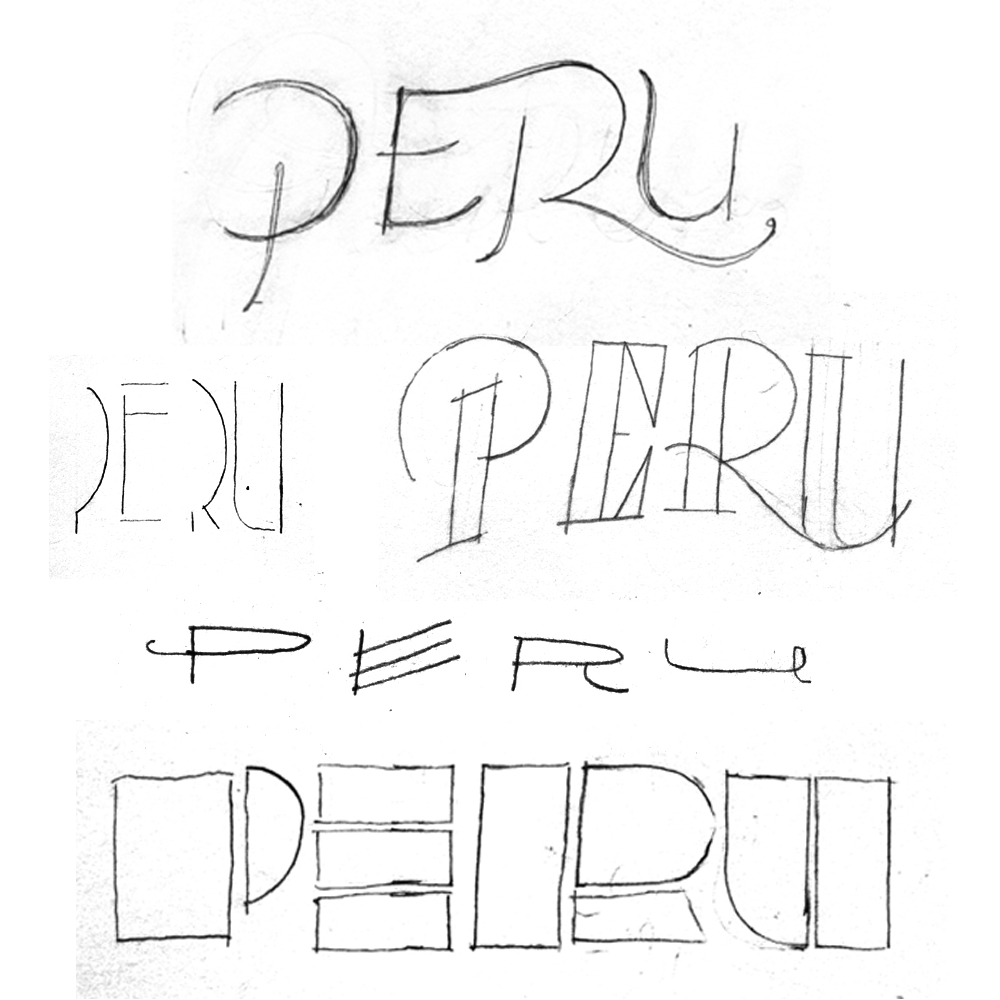 PERU
PERU
PERU
PERU
PERU